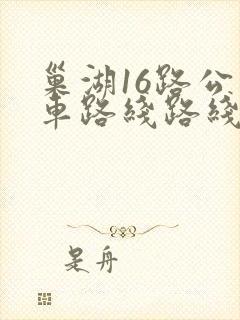 巢湖16路公
车路线路线
是舟